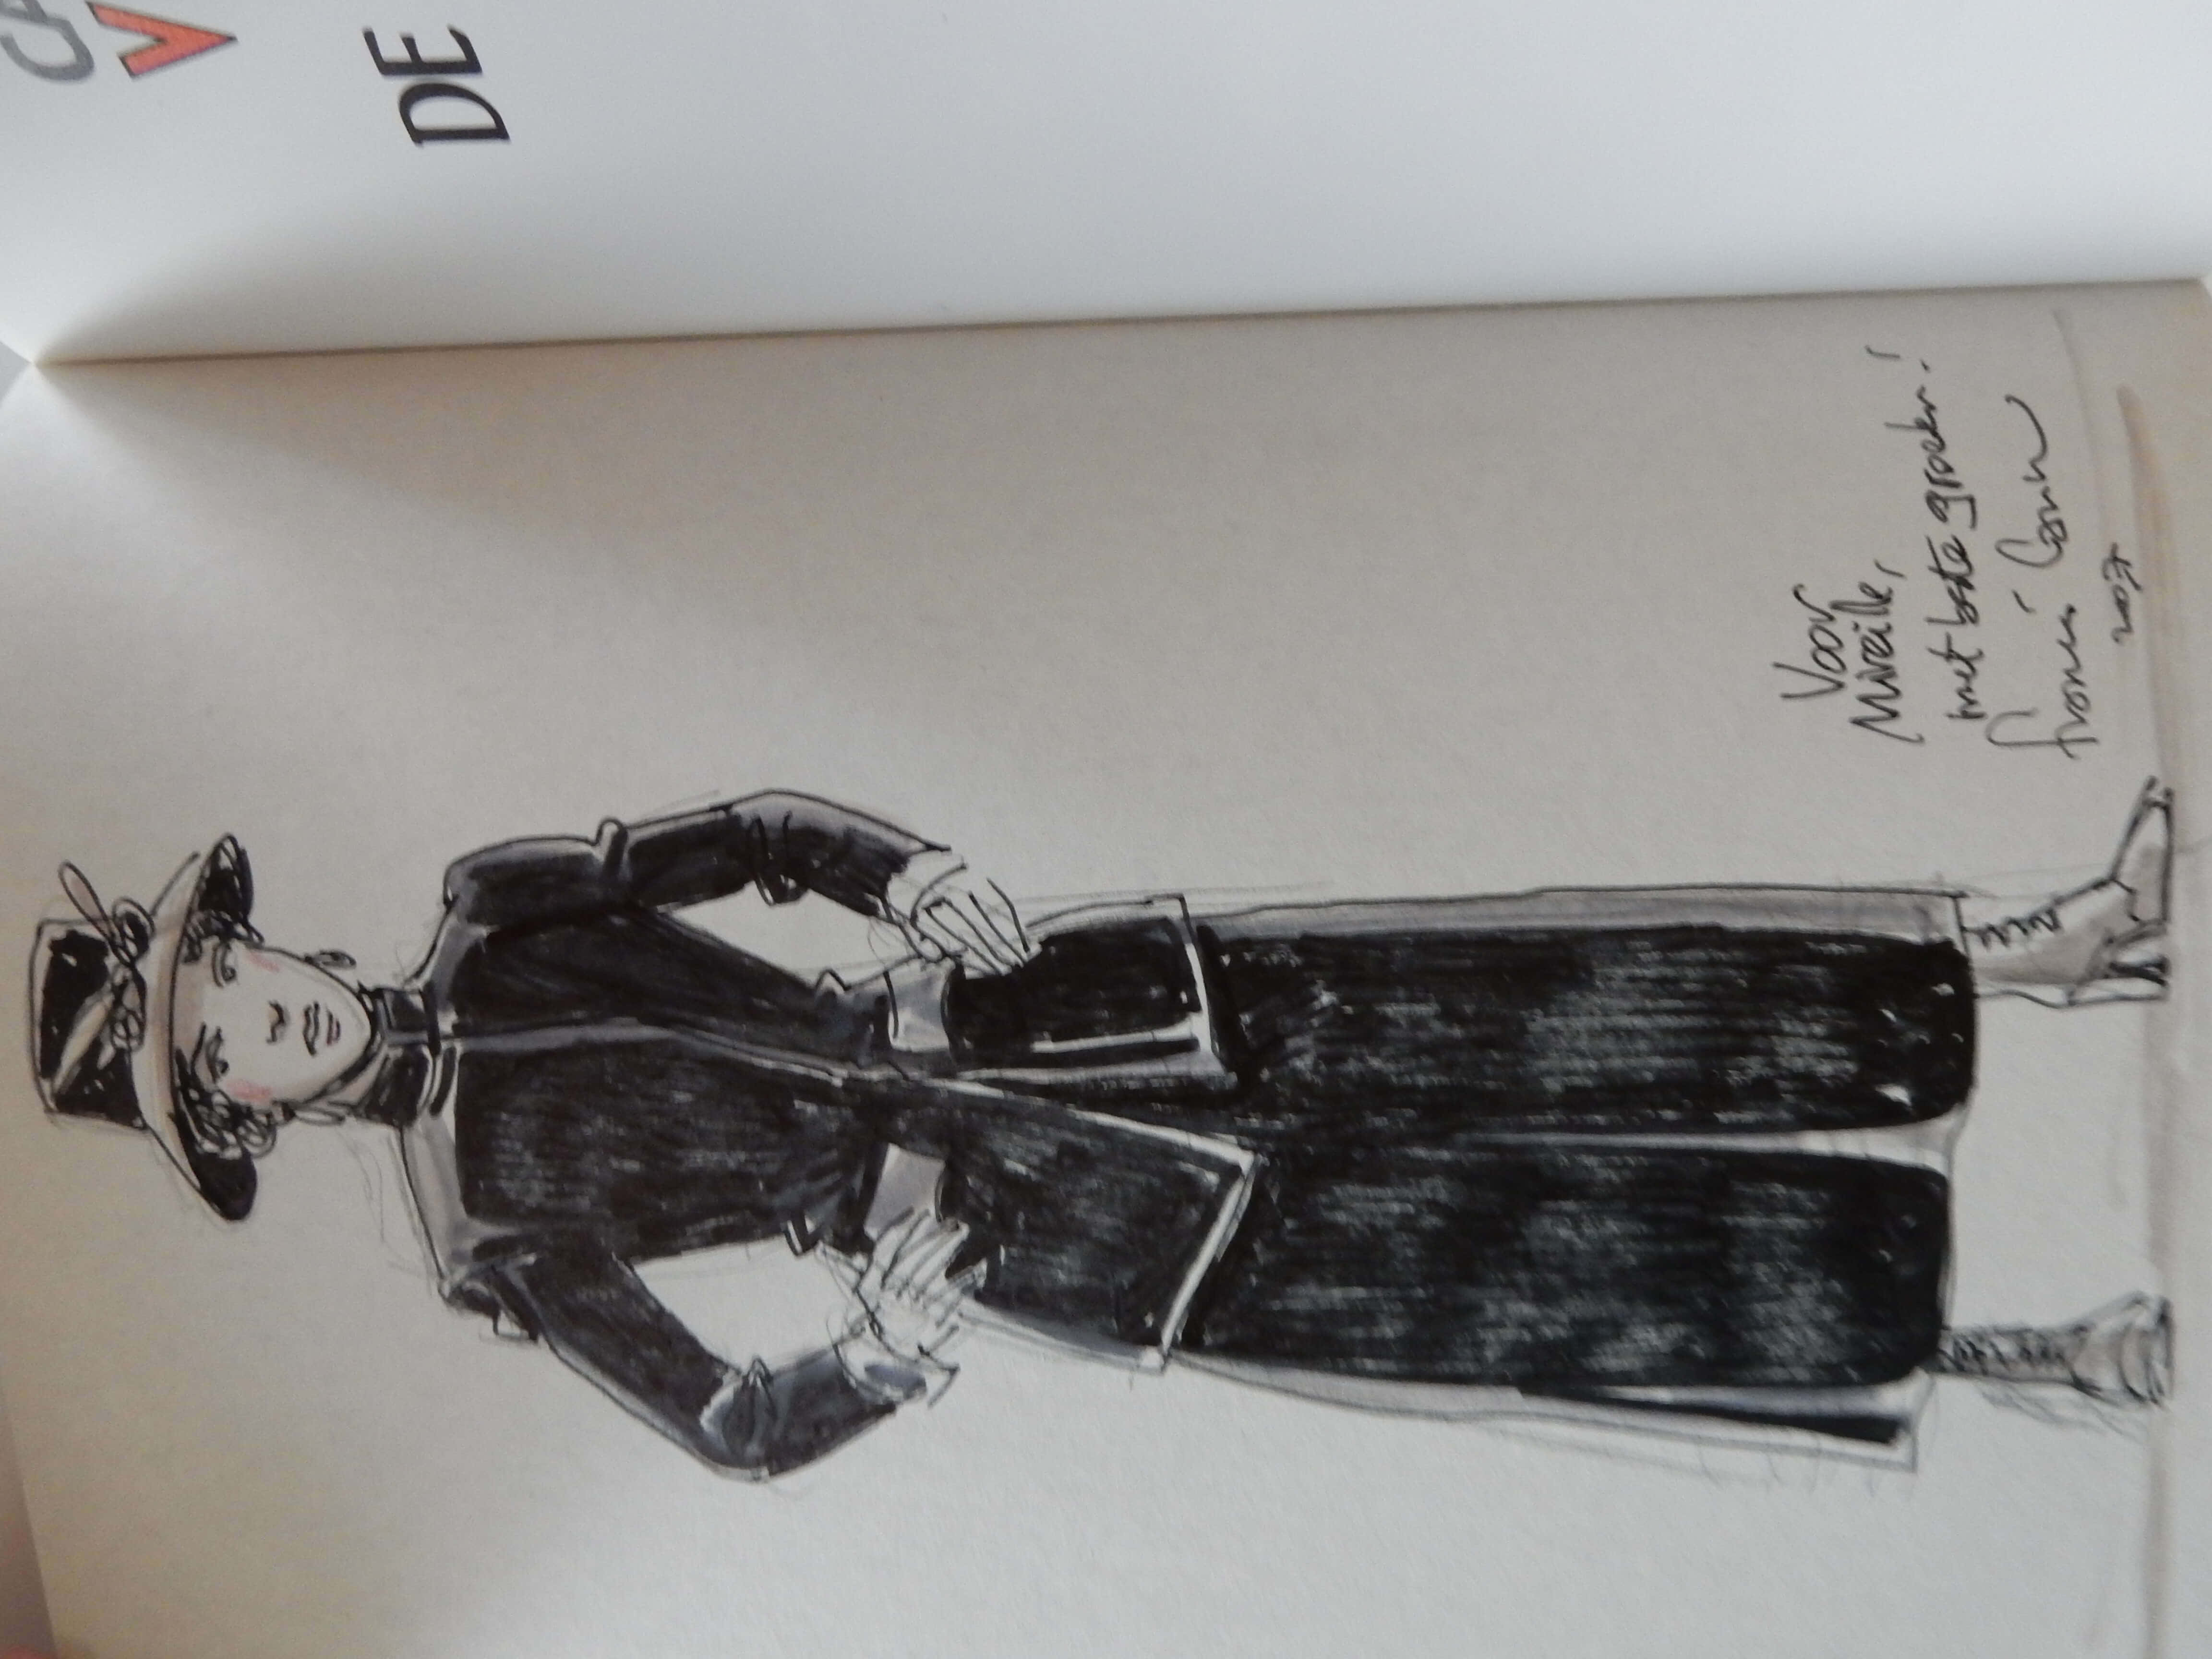 Voor
Mireille,
met beste groeten!
Francis Carin
2007
CA
V
DE